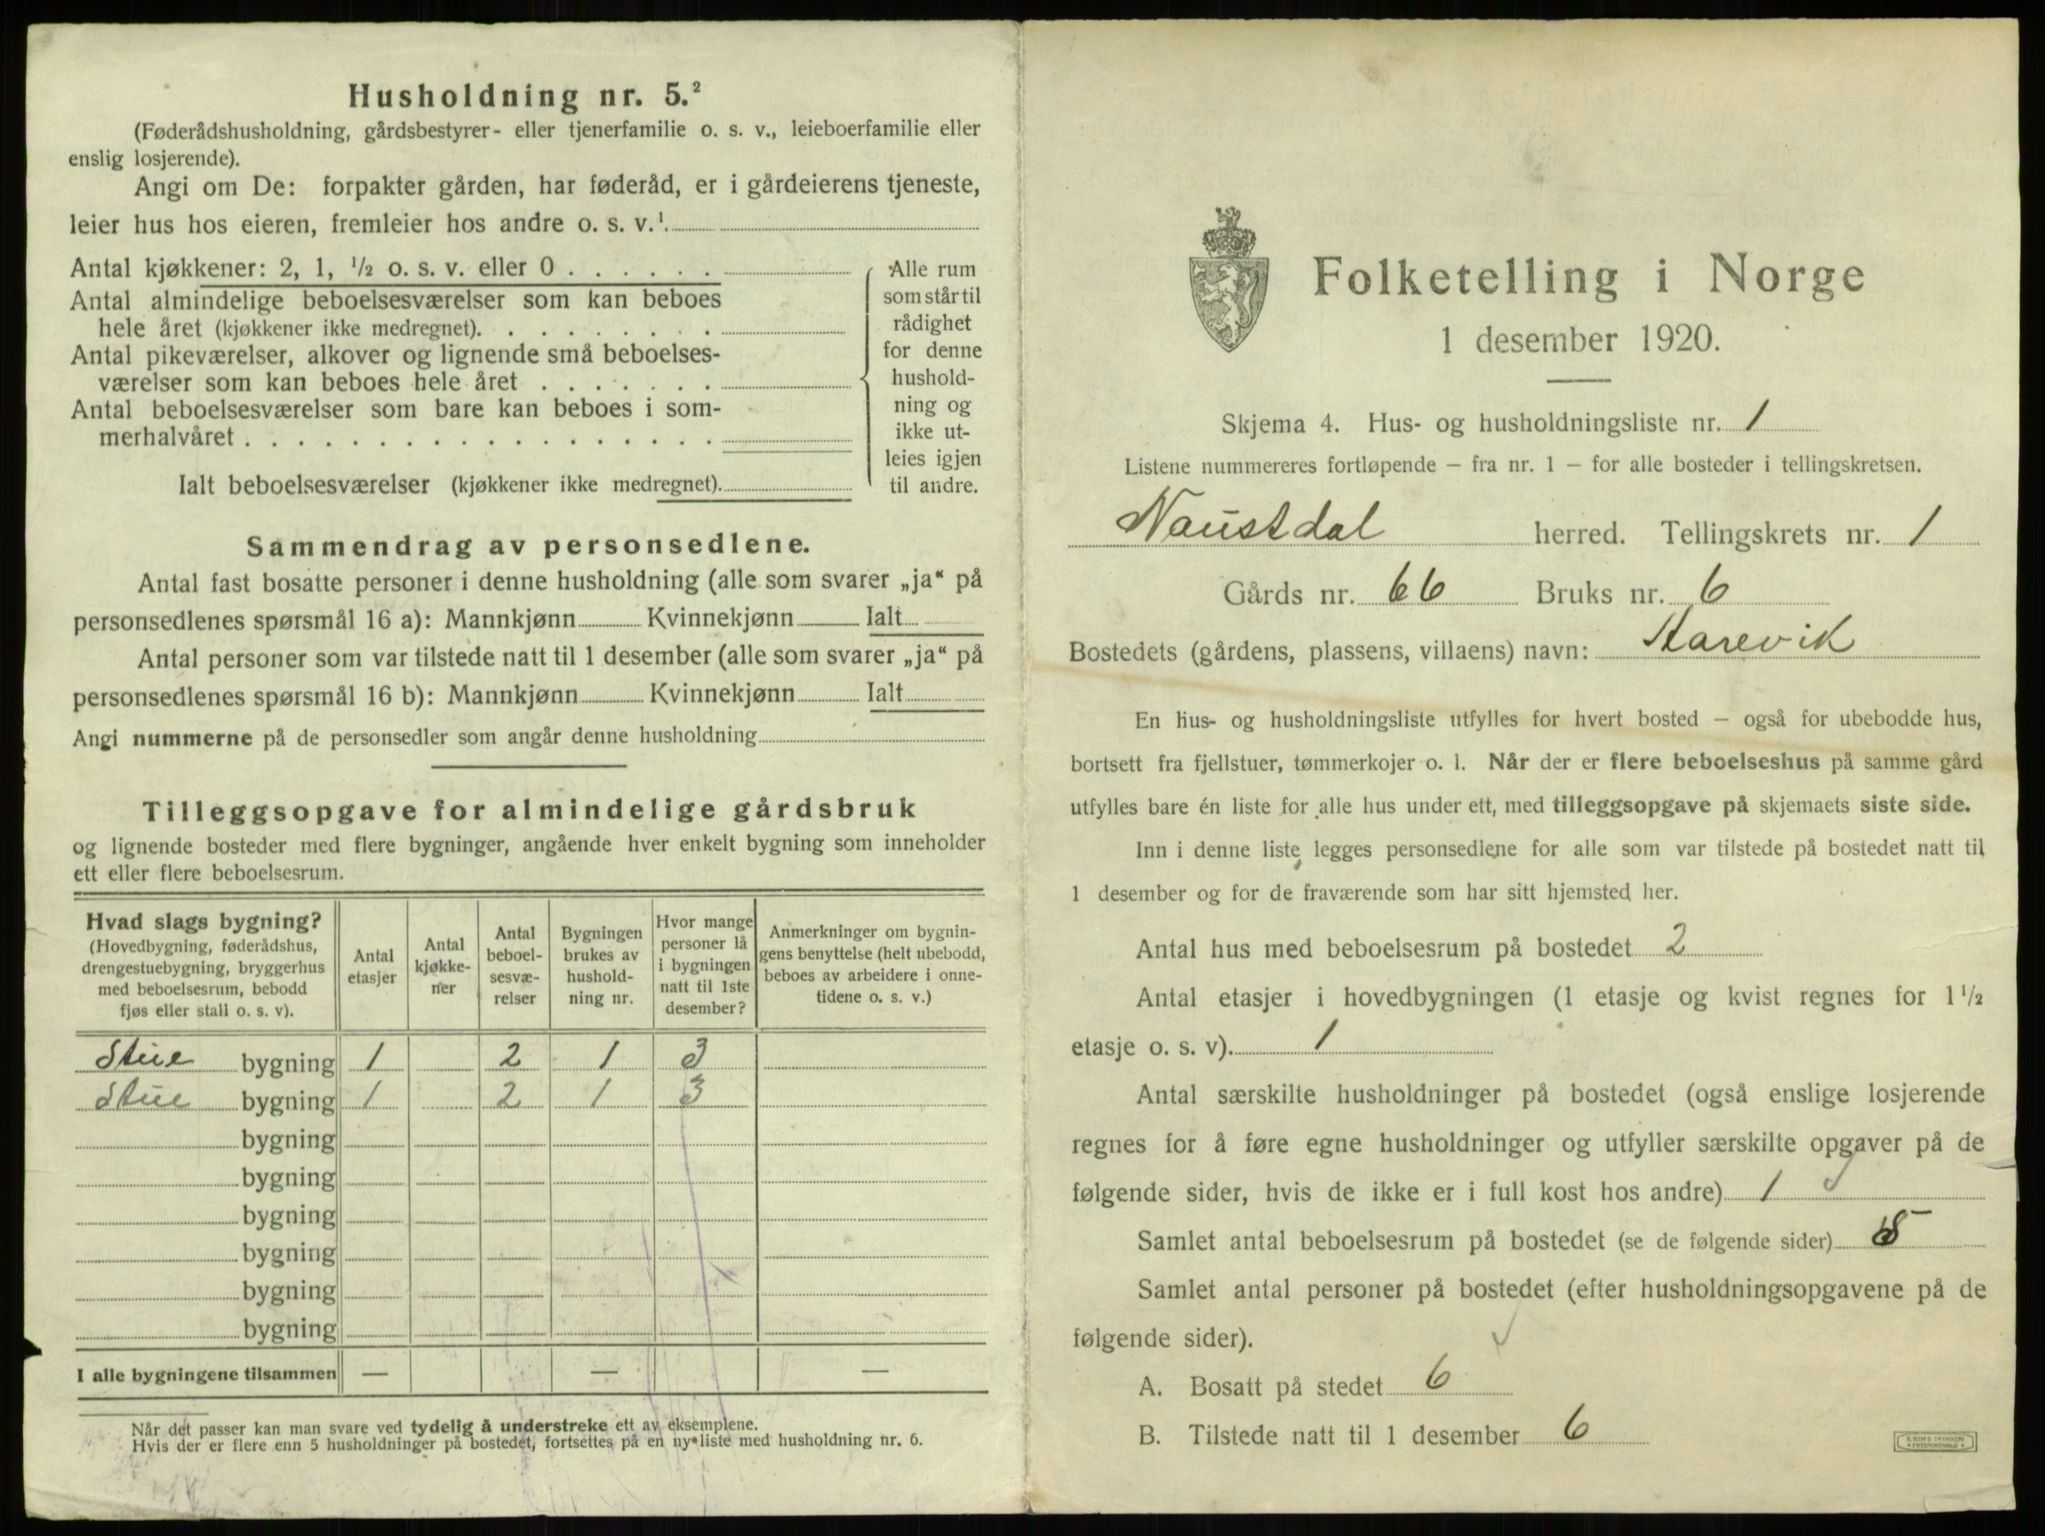 Husholdning nr. 5.²
(Føderådshusholdning, gårdsbestyrer- eller tjenerfamilie o. s. v., leieboerfamilie eller
enslig losjerende).
Angi om De: forpakter gården, har føderåd, er i gårdeierens tjeneste,
leier hus hos eieren, fremleier hos andre o. s. v.¹
Antal kjøkkener: 2, 1, ½ o. s. v. eller 0
Antal almindelige beboelsesværelser som kan beboes
hele året (kjøkkener ikke medregnet).
Antal pikeværelser, alkover og lignende små beboelses-
værelser som kan beboes hele året
Antal beboelsesværelser som bare kan beboes i som-
merhalvåret
Ialt beboelsesværelser (kjøkkener ikke medregnet).
Alle rum
som står til
rådighet
for denne
hushold-
ning og
ikke ut-
leies igjen
til andre.
Sammendrag av personsedlene.
Antal fast bosatte personer i denne husholdning (alle som svarer „ja“ på
personsedlenes spørsmål 16 a): Mannkjønn Kvinnekjønn Ialt
Antal personer som var tilstede natt til 1 desember (alle som svarer „ja“ på
personsedlenes spørsmål 16 b): Mannkjønn Kvinnekjønn Ialt
Angi nummerne på de personsedler som angår denne husholdning
Tilleggsopgave for almindelige gårdsbruk
og lignende bosteder med flere bygninger, angående hver enkelt bygning som inneholder
ett eller flere beboelsesrum.
Hvad slags bygning?
(Hovedbygning, føderådshus,
drengestuebygning, bryggerhus
med beboelsesrum, bebodd
fjøs eller stall o. s. v).
Antal
etasjer
Antal
kjøkke-
ner
Antal
beboel-
sesvæ-
relser
Bygningen
brukes av
hushold-
ning nr.
Hvor mange
personer lå
i bygningen
natt til 1ste
desember?
Anmerkninger om bygnin-
gens benyttelse (helt ubebodd,
beboes av arbeidere i onne-
tidene o. s. v.)
Stue bygning 1 2 1 3
Stue bygning 1 2 1 3
bygning
bygning
bygning
bygning
bygning
bygning
I alle bygningene tilsammen — — —
Når det passer kan man svare ved tydelig å understreke ett av eksemplene.
Hvis der er flere enn 5 husholdninger på bostedet, fortsettes på en ny liste med husholdning nr. 6.
Folketelling i Norge
1 desember 1920.
Skjema 4. Hus- og husholdningsliste nr. 1
Listene nummereres fortløpende – fra nr. 1 – for alle bosteder i tellingskretsen.
Naustdal herred. Tellingskrets nr. 1
Gårds nr. 66 Bruks nr. 6
Bostedets (gårdens, plassens, villaens) navn: Starevik
En hus- og husholdningsliste utfylles for hvert bosted – også for ubebodde hus,
bortsett fra fjellstuer, tømmerkojer o. l. Når der er flere beboelseshus på samme gård
utfylles bare én liste for alle hus under ett, med tilleggsopgave på skjemaets siste side.
Inn i denne liste legges personsedlene for alle som var tilstede på bostedet natt til
1 desember og for de fraværende som har sitt hjemsted her.
Antal hus med beboelsesrum på bostedet 2
Antal etasjer i hovedbygningen (1 etasje og kvist regnes for 1½
etasje o. s. v). 1
Antal særskilte husholdninger på bostedet (også enslige losjerende
regnes for å føre egne husholdninger og utfyller særskilte opgaver på de
følgende sider, hvis de ikke er i full kost hos andre) 1
Samlet antal beboelsesrum på bostedet (se de følgende sider)
Samlet antal personer på bostedet (efter husholdningsopgavene på de
følgende sider).
A. Bosatt på stedet 6
B. Tilstede natt til 1 desember 6